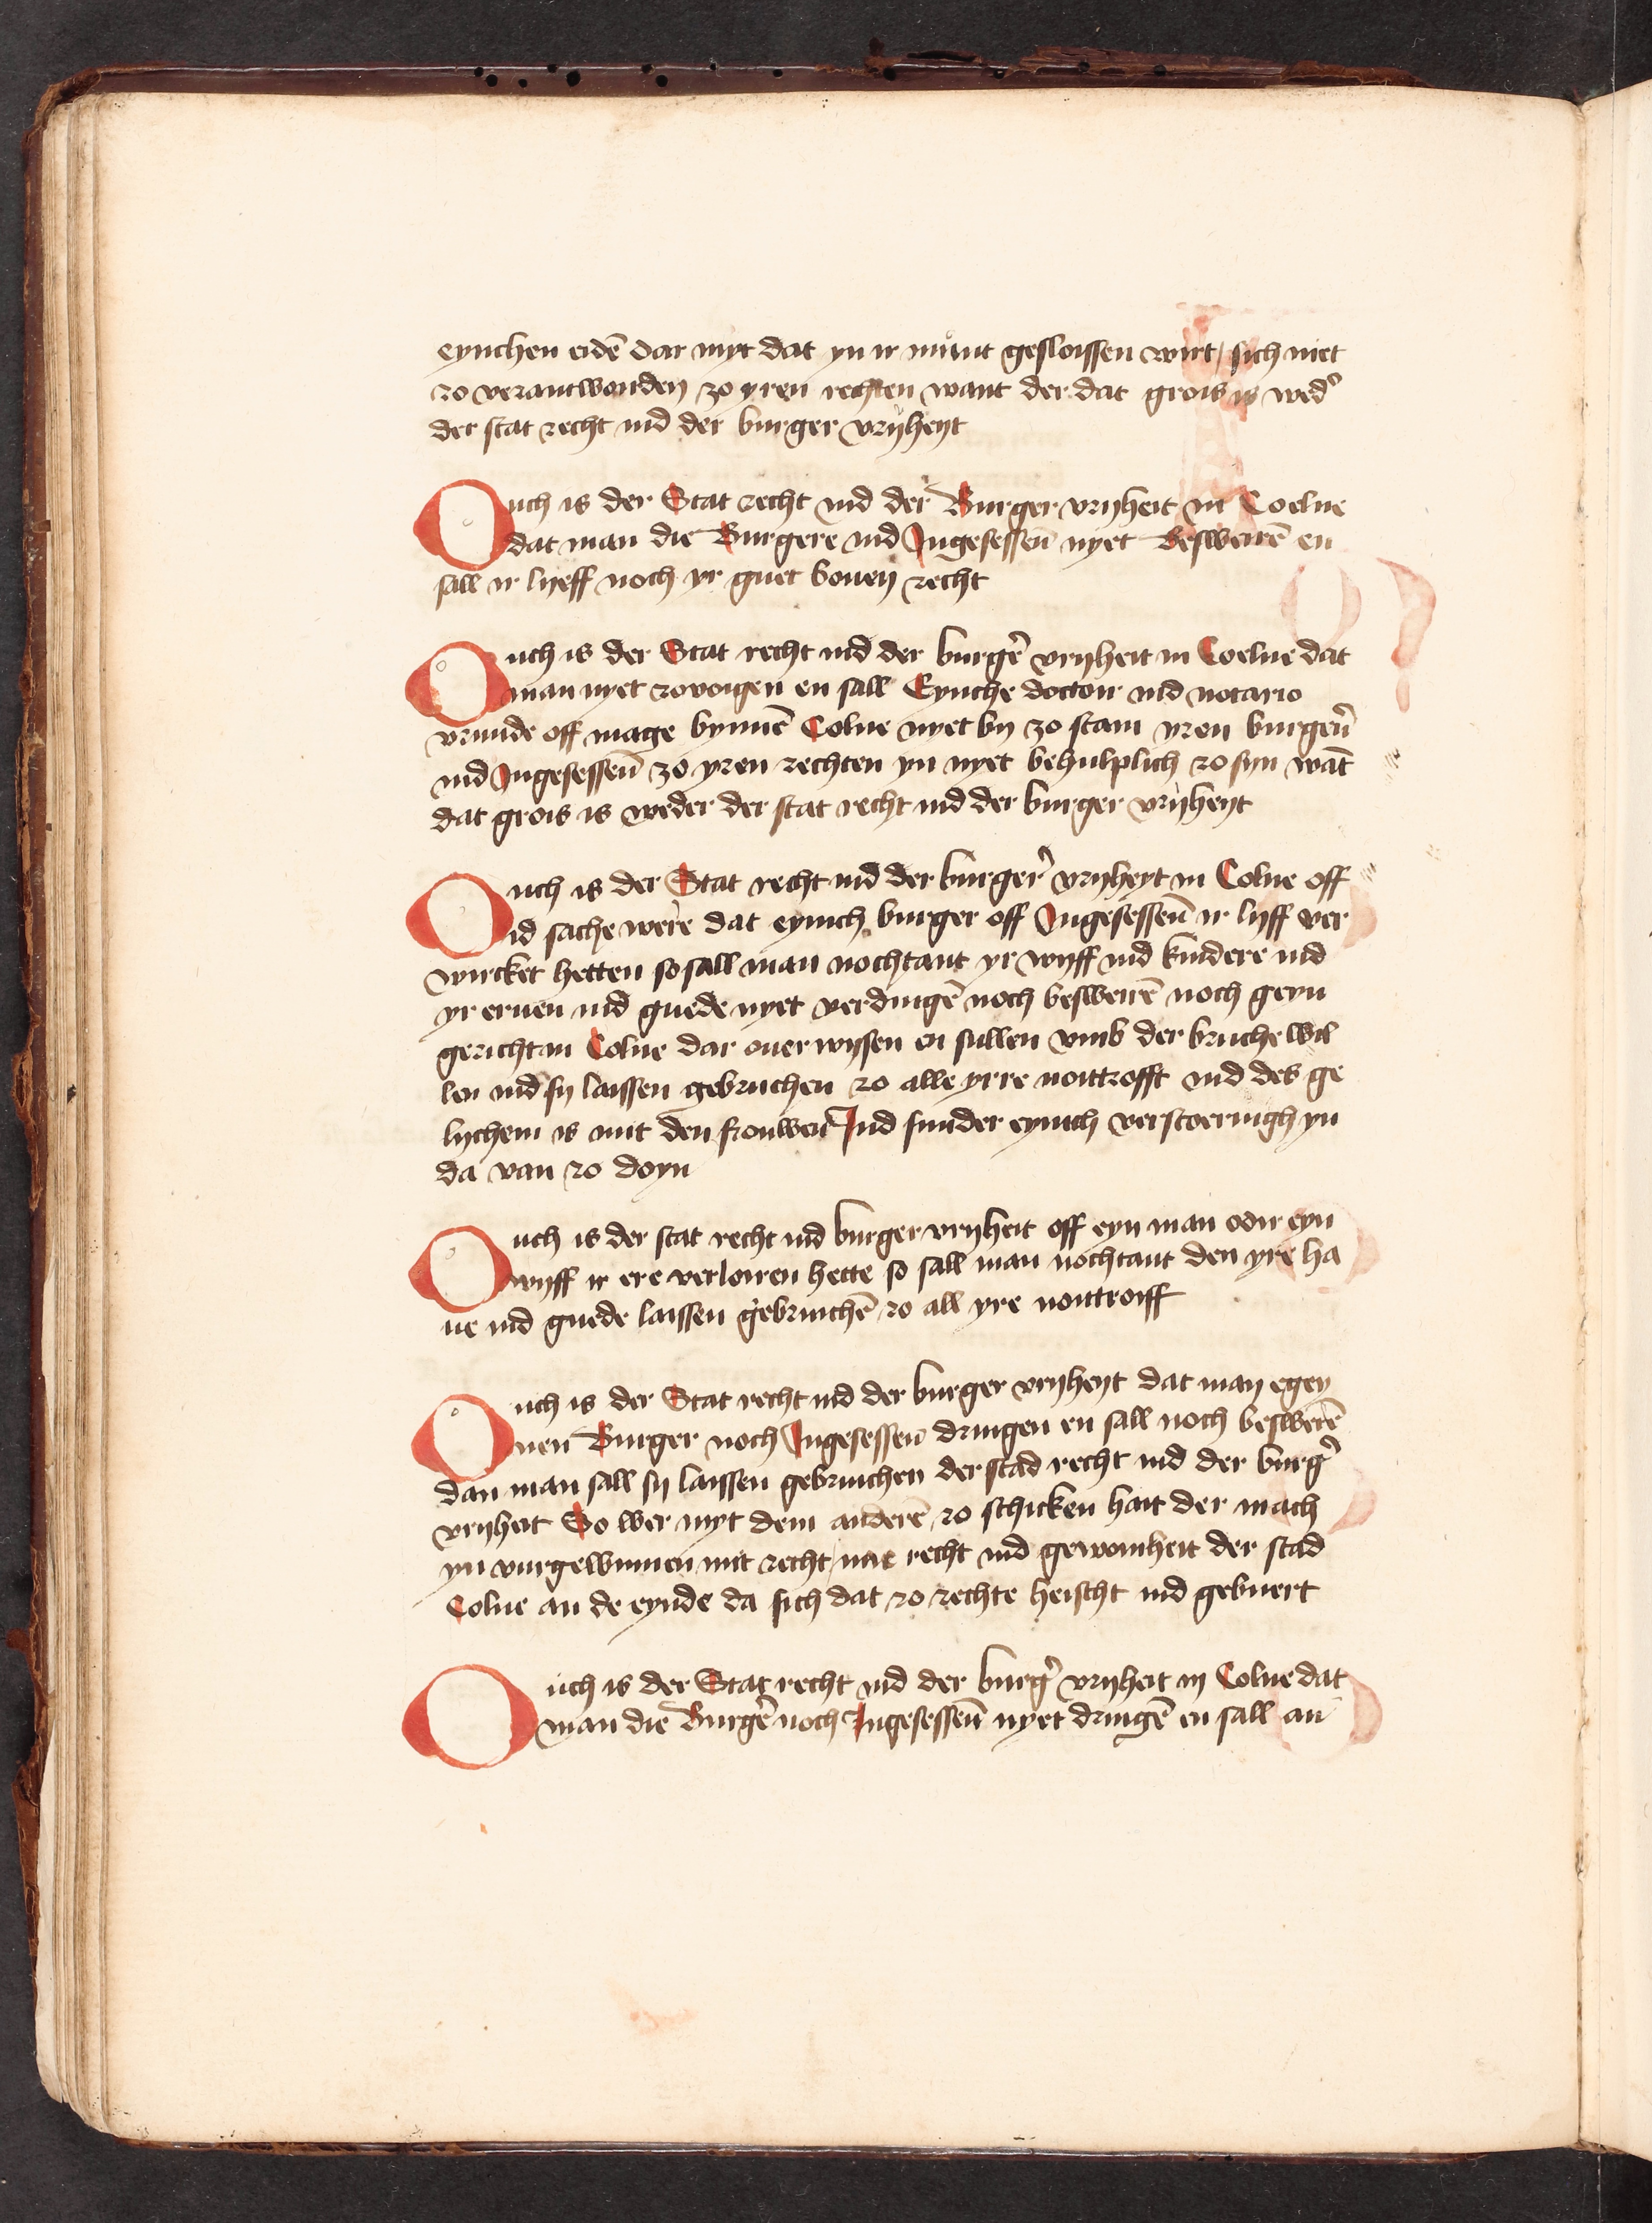 eynchen eidē dar myt dat yn ir munt geslossen wirt / sich niet
zo verantworden zo yren rechten want der dat grois is wedʼ
der stat recht ind der burger vryheyt
Ouch is der Stat recht ind der Burger vryheit in Coelne
dat man die Burgere ind Ingesessen̄ nyet besweirē en
sall ir lyeff noch yr guet bouen recht
Ouch is der Stat recht ind der burgʼe vryheit in Coelne dat
man nyet zovoigen en sall Eynche doctoir ind notario
vrunde off mage bynnē Colne nyet by zo stain yren burgerʼn
ind Ingesessen̄ zo yren rechten yn nyet behulplich zo syn wāt
dat grois is weder der stat recht ind der burger vryheyt
Ouch is der Stat recht ind der burgerʼ vryheyt in Colne off
id sache were dat eynich burger off Ingesessen̄ ir lyff ver
wircket hetten so sall man nochtant yr wyff ind kindere ind
yr eruen ind guede nyet verdingē noch besweirē noch geyn
gericht an Colne dar ouer wysen en sullen vmb der bruche wil
len ind sy laissen gebruchen zo alle yrre noittrofft ind des ge
lychem is mit den frouwen Ind sunder eynich verstoeringh yn
da van zo doyn
Ouch is der stat recht ind burger vryheit off eyn man odir eyn
wyff ir ere verloiren hette so sall man nochtant den yre ha
ue ind guede laissen gebruichē zo all yre noittroiff
Ouch is der Stat recht ind der burger vryheyt dat man egey
nen Burger noch Ingesessen dringen en sall noch beswerē
dan man sall sy laissen gebruichen der stad recht ind der burgʼ
vryheit So wer myt dem anderē zo schicken hait der mach
yn vurgewinnen mit recht / nae recht ind gewoinheit der stad
Colne an de eynde da sich dat zo rechte heischt ind gebuert
Ouch is der Stat recht ind der burgʼ vryheit in Colne dat
man die Burgʼe noch Ingesessen̄ nyet dringē en sall an